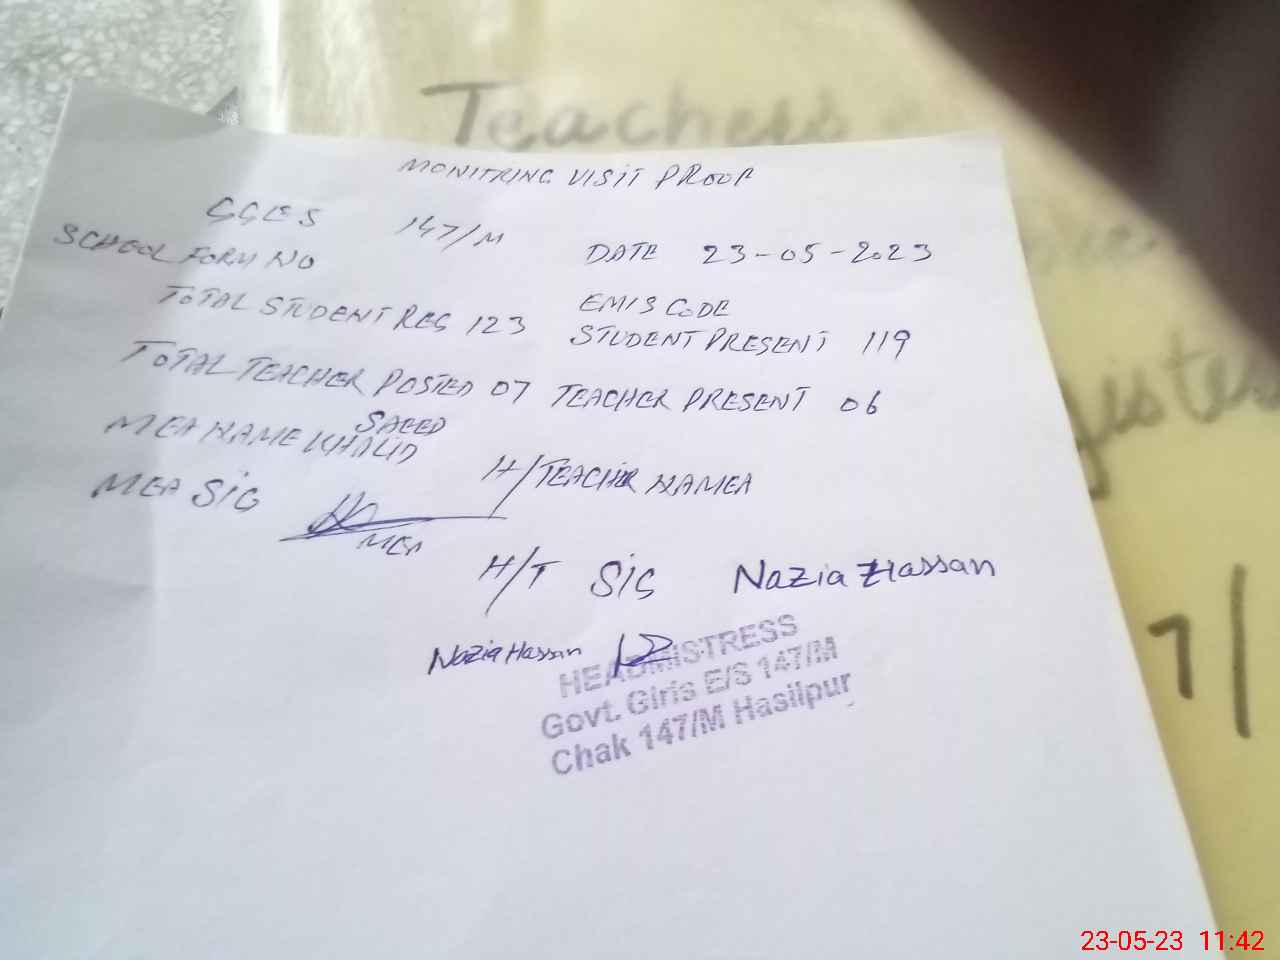 Teachers
MONITRING VISIT PROOF
GGES 147/M
SCHOOL FORM NO
DATE 23-05-2023
TOTAL STUDENT REG 123
EMIS CODE
STUDENT PRESENT 119
TOTAL TEACHER POSTED 07 TEACHER PRESENT 06
SAEED
MEA NAME KHALID
H/TEACHER NAMEA
MEA SIG
MEA
H/T SIG Nazia Hassan
Nazia Hassan
HEADMISTRESS
Govt. Girls E/S 147/M
Chak 147/M Hasilpur
7/
23-05-23 11:42